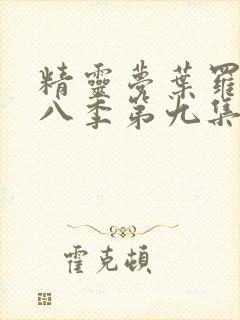 精靈夢葉羅
八季第九集
霍克頓